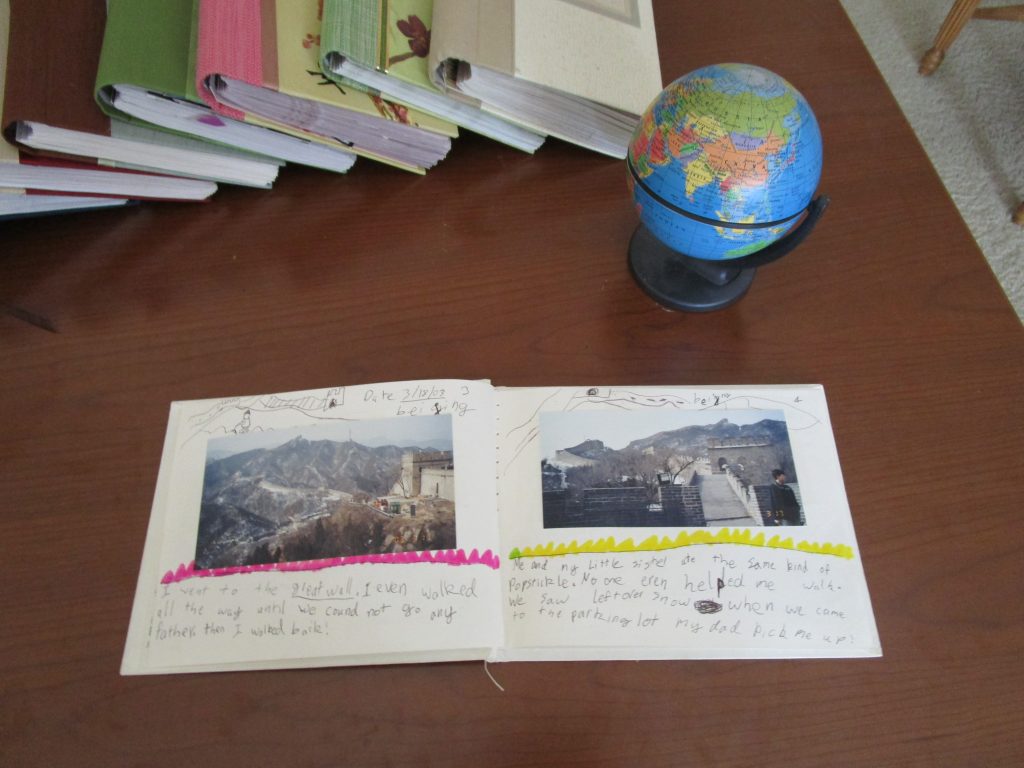 Date 3/18/03 3
beijing
I went to the great wall. I even walked
all the way until we could not go any
fathers then I walked back!
beijing 4
3 17
Me and my Little sister ate the same kind of
Popstickle. No one even helped me walk.
We saw leftover snow when we came
to the parking lot my dad pick me up!